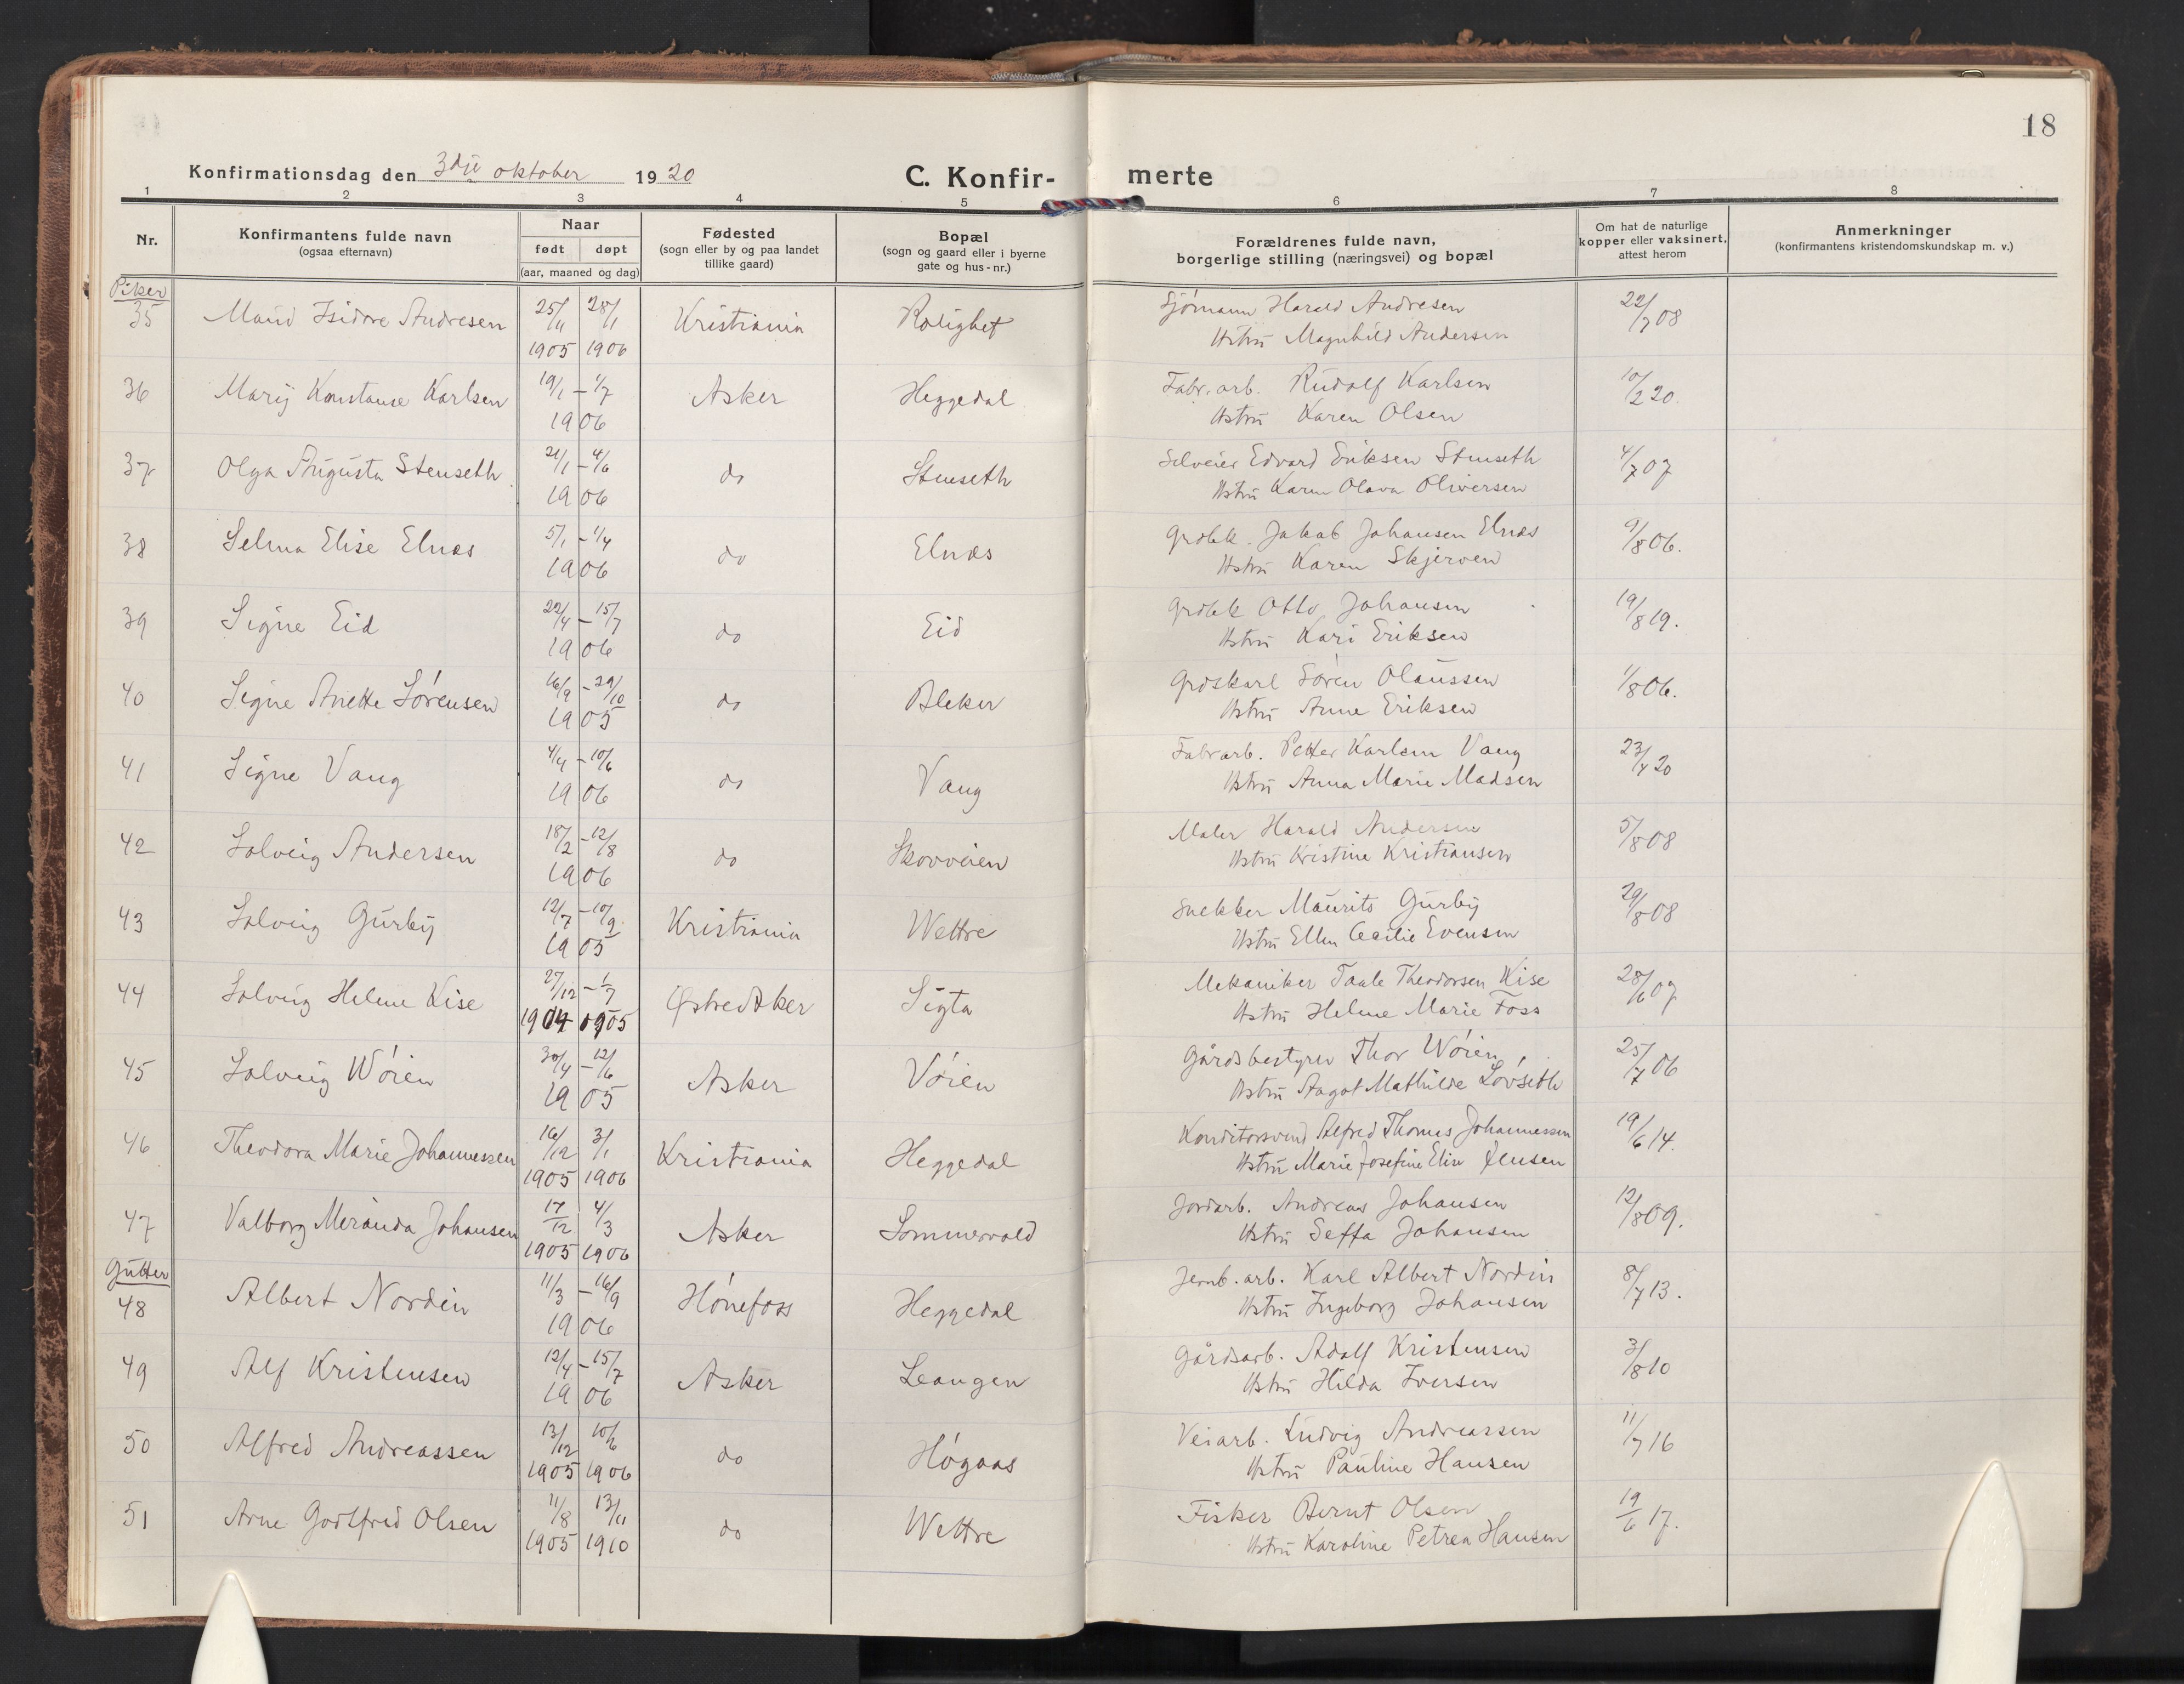 18
Konfirmationsdag den 3dje oktober 1920
C. Konfir- merte
1 2 3 4 5 6 7 8
Nr.
Konfirmantens fulde navn
(ogsaa efternavn)
Naar
født døpt
(aar, maaned og dag)
Fødested
(sogn eller by og paa landet
tillike gaard)
Bopæl
(sogn og gaard eller i byerne
gate og hus-nr.)
Forældrenes fulde navn,
borgerlige stilling (næringsvei) og bopæl
Om hat de naturlige
kopper eller vaksinert,
attest herom
Anmerkninger
(konfirmantens kristendomskundskap m. v.)
Piker
35 Maud Isidore Andresen 25/11 28/1 Kristiania Rolighet Sjømann Harald Andresen 22/7 08
1905 1906 Hstru Magnhild Andersen
36 Mary Konstanse Karlsen 19/1 – 1/7 Asker Heggedal Fabr. arb. Rudolf Karlsen 10/2 20.
1906 Hstru Karen Olsen
37 Olga Augusta Stenseth 21/1 – 4/6 do Stenseth Selveier Edvard Eriksen Stenseth 4/7 07
1906 Hstru Karen Olava Oliversen
38 Selma Elise Elnes 5/1 – 1/4 do Elnes Grdbk. Jakob Johansen Elnes 9/8 06.
1906 Hstru Karen Skjerven
39 Signe Eid 22/4 – 15/7 do Eid Grdbk Otto Johansen 19/8 19.
1906 Hstru Kari Eriksen
40 Signe Anette Sørensen 16/9 – 29/10 do Bleker Grdskarl Søren Olaussen 1/8 06.
1905 Hstru Anne Eriksen
41 Signe Vang 4/4 – 10/6 do Vang Fabr arb. Petter Karlsen Vang 23/4 20
1906 Hstru Anna Marie Madsen
42 Solveig Andersen 18/2 – 12/8 do Skovveien Maler Harald Andersen 5/8 08
1906 Hstru Kristine Kristiansen
43 Solveig Gurby 12/7 – 10/9 Kristiania Wettre Snekker Maurits Gurby 29/8 08
1905 Hstru Ellen Cecilie Evensen
44 Solveig Helene Kise 27/12 – 1/7 Østre Aker Sigta Mekaniker Taale Theodorsen Kise 28/6 07
1904 1905 Hstru Helene Marie Foss
45 Solveig Wøien 30/4 – 12/6 Asker Vøien Gårdsbestyrer Thor Wøien, 25/7 06
1905 Hstru Aagot Mathilde Løvseth
46 Theodora Marie Johannessen 16/12 3/1 Kristiania Heggedal Konditorsvend Alfred Thomas Johannessen 19/6 14.
1905 1906 Hstru Marie Josefine Elise Jensen
47 Valborg Meranda Johansen 17/12 4/3 Asker Sommervold Jordarb. Andreas Johansen 12/8 09.
1905 1906 Hstru Seffa Johansen
Gutter
48 Albert Nordin 11/3 – 16/9 Hønefoss Heggedal Jernb. arb. Karl Albert Nordin 8/7 13.
1906 Hstru Ingeborg Johansen
49 Alf Kristensen 12/4 – 15/7 Asker Leangen Gårdsarb. Adolf Kristensen 3/8 10
1906 Hstru Hilda Iversen
50 Alfred Andreassen 13/12 10/6 do Høgaas Veiarb. Ludvig Andreassen 11/7 16
1905 1906 Hstru Pauline Hansen
51 Arne Godtfred Olsen 11/8 13/11 do Wettre Fisker Bernt Olsen 19/6 17.
1905 1910 Hstru Karoline Petrea Hansen